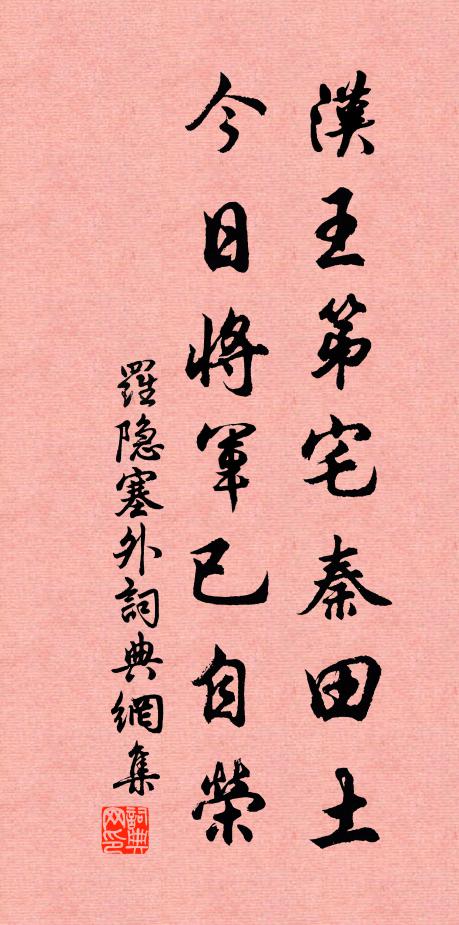 漢王第宅秦田土
今日將軍已自榮
羅隐塞外詞典網集
詞典网印